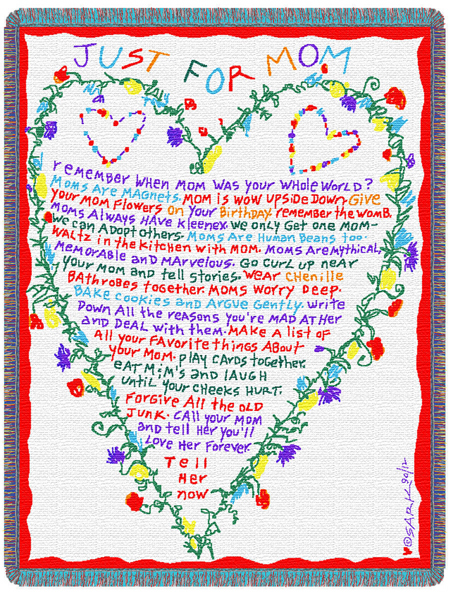 JUST FOR MOM
remember WHEN MOM WAS your WHOLE WORLD?
MOMS ARE MAGNETS. MOM is WOW UPSIDE DOWN. GIVE
your MOM FLOWERS ON YOUR BirthDAY. remember the WOMB.
MOMS ALWAYS HAVE KLEENEX. we ONLY Get ONE MOM-
we CAN ADOPT OTHERS. MOMS ARE HUMAN BEANS TOO.
WALTZ in the KITCHEN with MOM. MOMS Are MYTHICAL,
MEMORABLE AND MARVELOUS. GO CURL UP NEAR
YOUR MOM and tell STORIES. WEAR CHENILLE
BATHROBES together. MOMS WORRY DEEP.
BAKE COOKIES and ARGUE GENTLY. WRITE
DOWN All the reasons you're MAD At Her
and DEAL with them. MAKE A LIST OF
All your FAVORITE things ABOUT
your MOM. PLAY CARDS together.
EAT M&M'S and lAUGH
UNTIL YOUR CHEEKS HURT.
FORGIVE All the OLD
JUNK. CALL your MOM
and tell Her you'll
LOVE Her Forever.
Tell
Her
now
©SARK